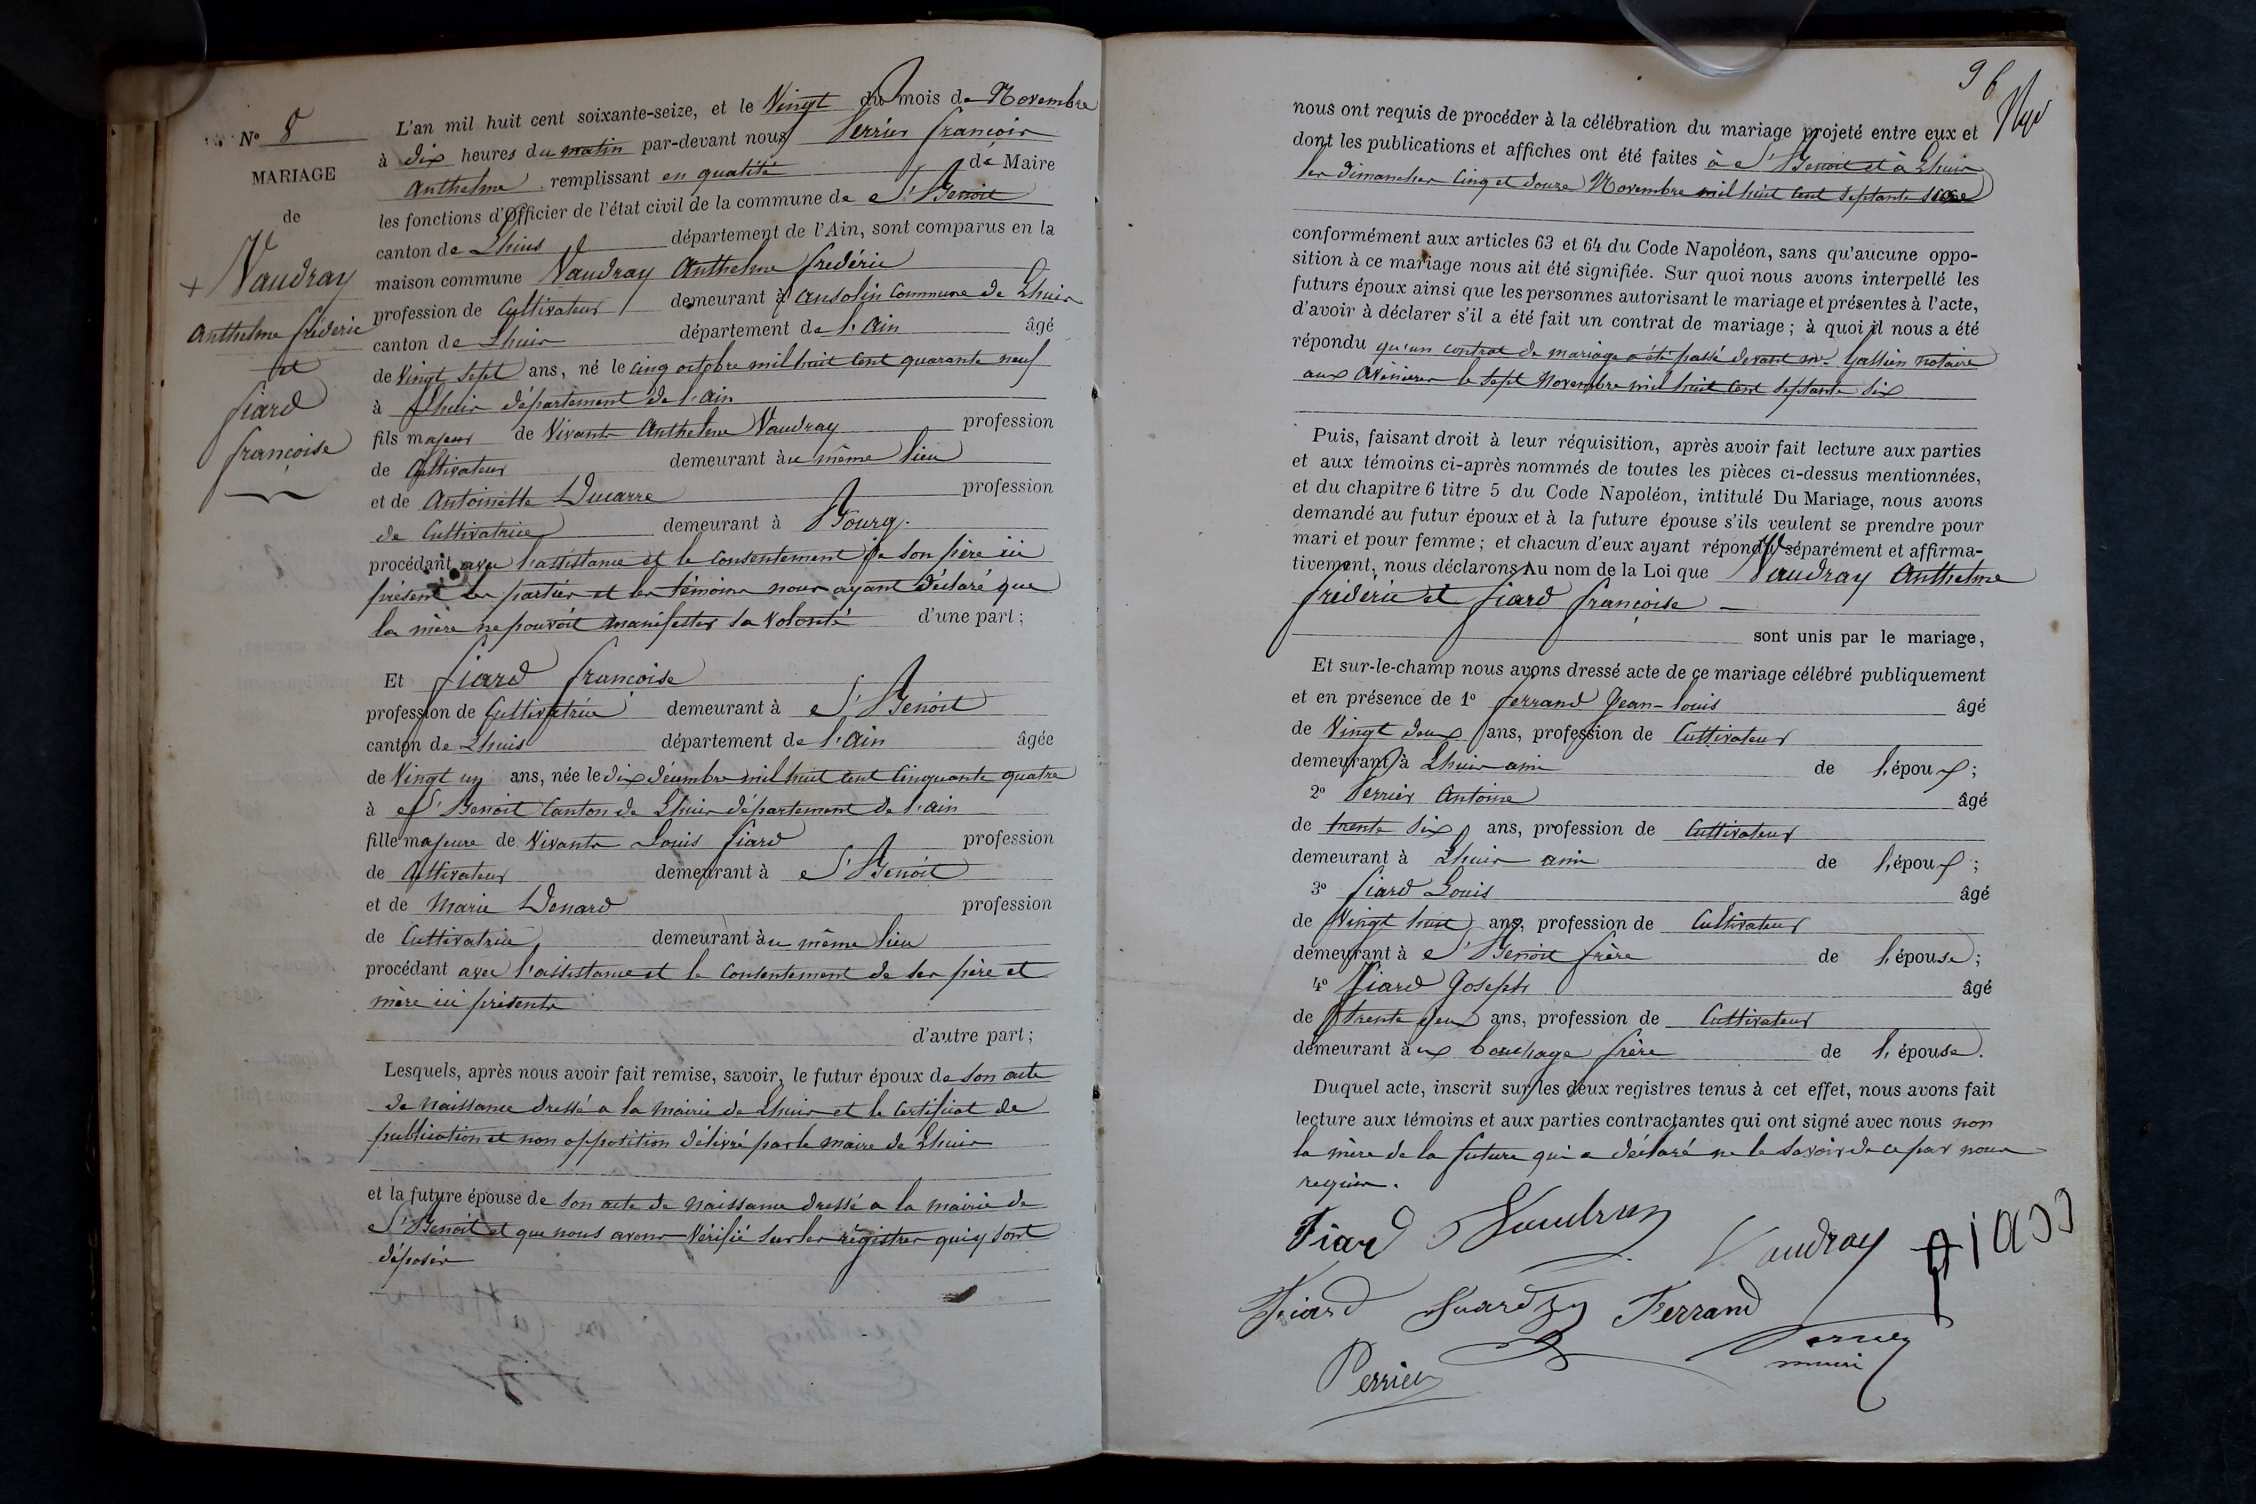 N° 8
MARIAGE
de
+ Vaudray
Anthelme frédéric
et
fiard
françoise
L'an mil huit cent soixante-seize, et le Vingt du mois de Novembre
à dix heures du matin par-devant nous Perrier françois
Anthelme remplissant en qualité de Maire
les fonctions d'Officier de l'état civil de la commune de St Benoit
canton de Lhuis département de l'Ain, sont comparus en la
maison commune Vaudray Anthelme frédéric
profession de Cultivateur demeurant à ansolin Commune de Lhuis
canton de Lhuis département de l'Ain âgé
de Vingt sept ans, né le cinq octobre mil huit cent quarante neuf
à Lhuis département de l'ain
fils majeur de Vivants Anthelme Vaudray profession
de Cultivateur demeurant au même lieu
et de Antoinette Ducarre profession
de Cultivatrice demeurant à Bourg.
procédant avec l'assistance et le consentement de son père ici
présent les parties et les témoins nous ayant déclaré que
la mère ne pouvoit manifester sa volonté d'une part;
Et fiard françoise
profession de Cultivatrice demeurant à St Benoit
canton de Lhuis département de l'Ain âgée
de Vingt un ans, née le dix décembre mil huit cent cinquante quatre
à St Benoit Canton de Lhuis département de l'ain
fille majeure de Vivants Louis fiard profession
de Cultivateur demeurant à St Benoit
et de Marie Denard profession
de Cultivatrice demeurant au même lieu
procédant avec l'assistance et le consentement de ses père et
mère ici présents
d'autre part;
Lesquels, après nous avoir fait remise, savoir, le futur époux de son acte
de naissance dressé a la mairie de Lhuis et le Certificat de
publication et non opposition délivré par le maire de Lhuis
et la future épouse de son acte de naissance dressé a la mairie de
St Benoit et que nous avons Vérifié sur les régistres qui y sont
déposés
96
nous ont requis de procéder à la célébration du mariage projeté entre eux et
dont les publications et affiches ont été faites à St Benoit et à Lhuis
les dimanches Cinq et douze Novembre mil huit cent septante seize
conformément aux articles 63 et 64 du Code Napoléon, sans qu'aucune oppo-
sition à ce mariage nous ait été signifiée. Sur quoi nous avons interpellé les
futurs époux ainsi que les personnes autorisant le mariage et présentes à l'acte,
d'avoir à déclarer s'il a été fait un contrat de mariage; à quoi il nous a été
répondu qu'un contrat de mariage a été passé devant me Gallien notaire
aux Avenieres le sept Novembre mil huit cent septante six
Puis, faisant droit à leur réquisition, après avoir fait lecture aux parties
et aux témoins ci-après nommés de toutes les pièces ci-dessus mentionnées,
et du chapitre 6 titre 5 du Code Napoléon, intitulé Du Mariage, nous avons
demandé au futur époux et à la future épouse s'ils veulent se prendre pour
mari et pour femme; et chacun d'eux ayant répondu séparément et affirma-
tivement, nous déclarons Au nom de la Loi que Vaudray Anthelme
frédéric et fiard françoise
sont unis par le mariage,
Et sur-le-champ nous avons dressé acte de ce mariage célébré publiquement
et en présence de 1° ferrand Jean-Louis âgé
de Vingt deux ans, profession de Cultivateur
demeurant à Lhuis ami de l'époux;
2° Perrier Antoine âgé
de trente six ans, profession de Cultivateur
demeurant à Lhuis ami de l'époux;
3° fiard Louis âgé
de Vingt huit ans, profession de Cultivateur
demeurant à St Benoit frère de l'épouse;
4° fiard Joseph âgé
de trente deux ans, profession de Cultivateur
demeurant aux bouchage frère de l'épouse.
Duquel acte, inscrit sur les deux registres tenus à cet effet, nous avons fait
lecture aux témoins et aux parties contractantes qui ont signé avec nous non
la mère de la future qui a déclaré ne le savoir de ce par nous
requise.
Fiard Vaudray Vaudray fiard
Fiard Fiard Ferrand
Perrier
Perrier maire